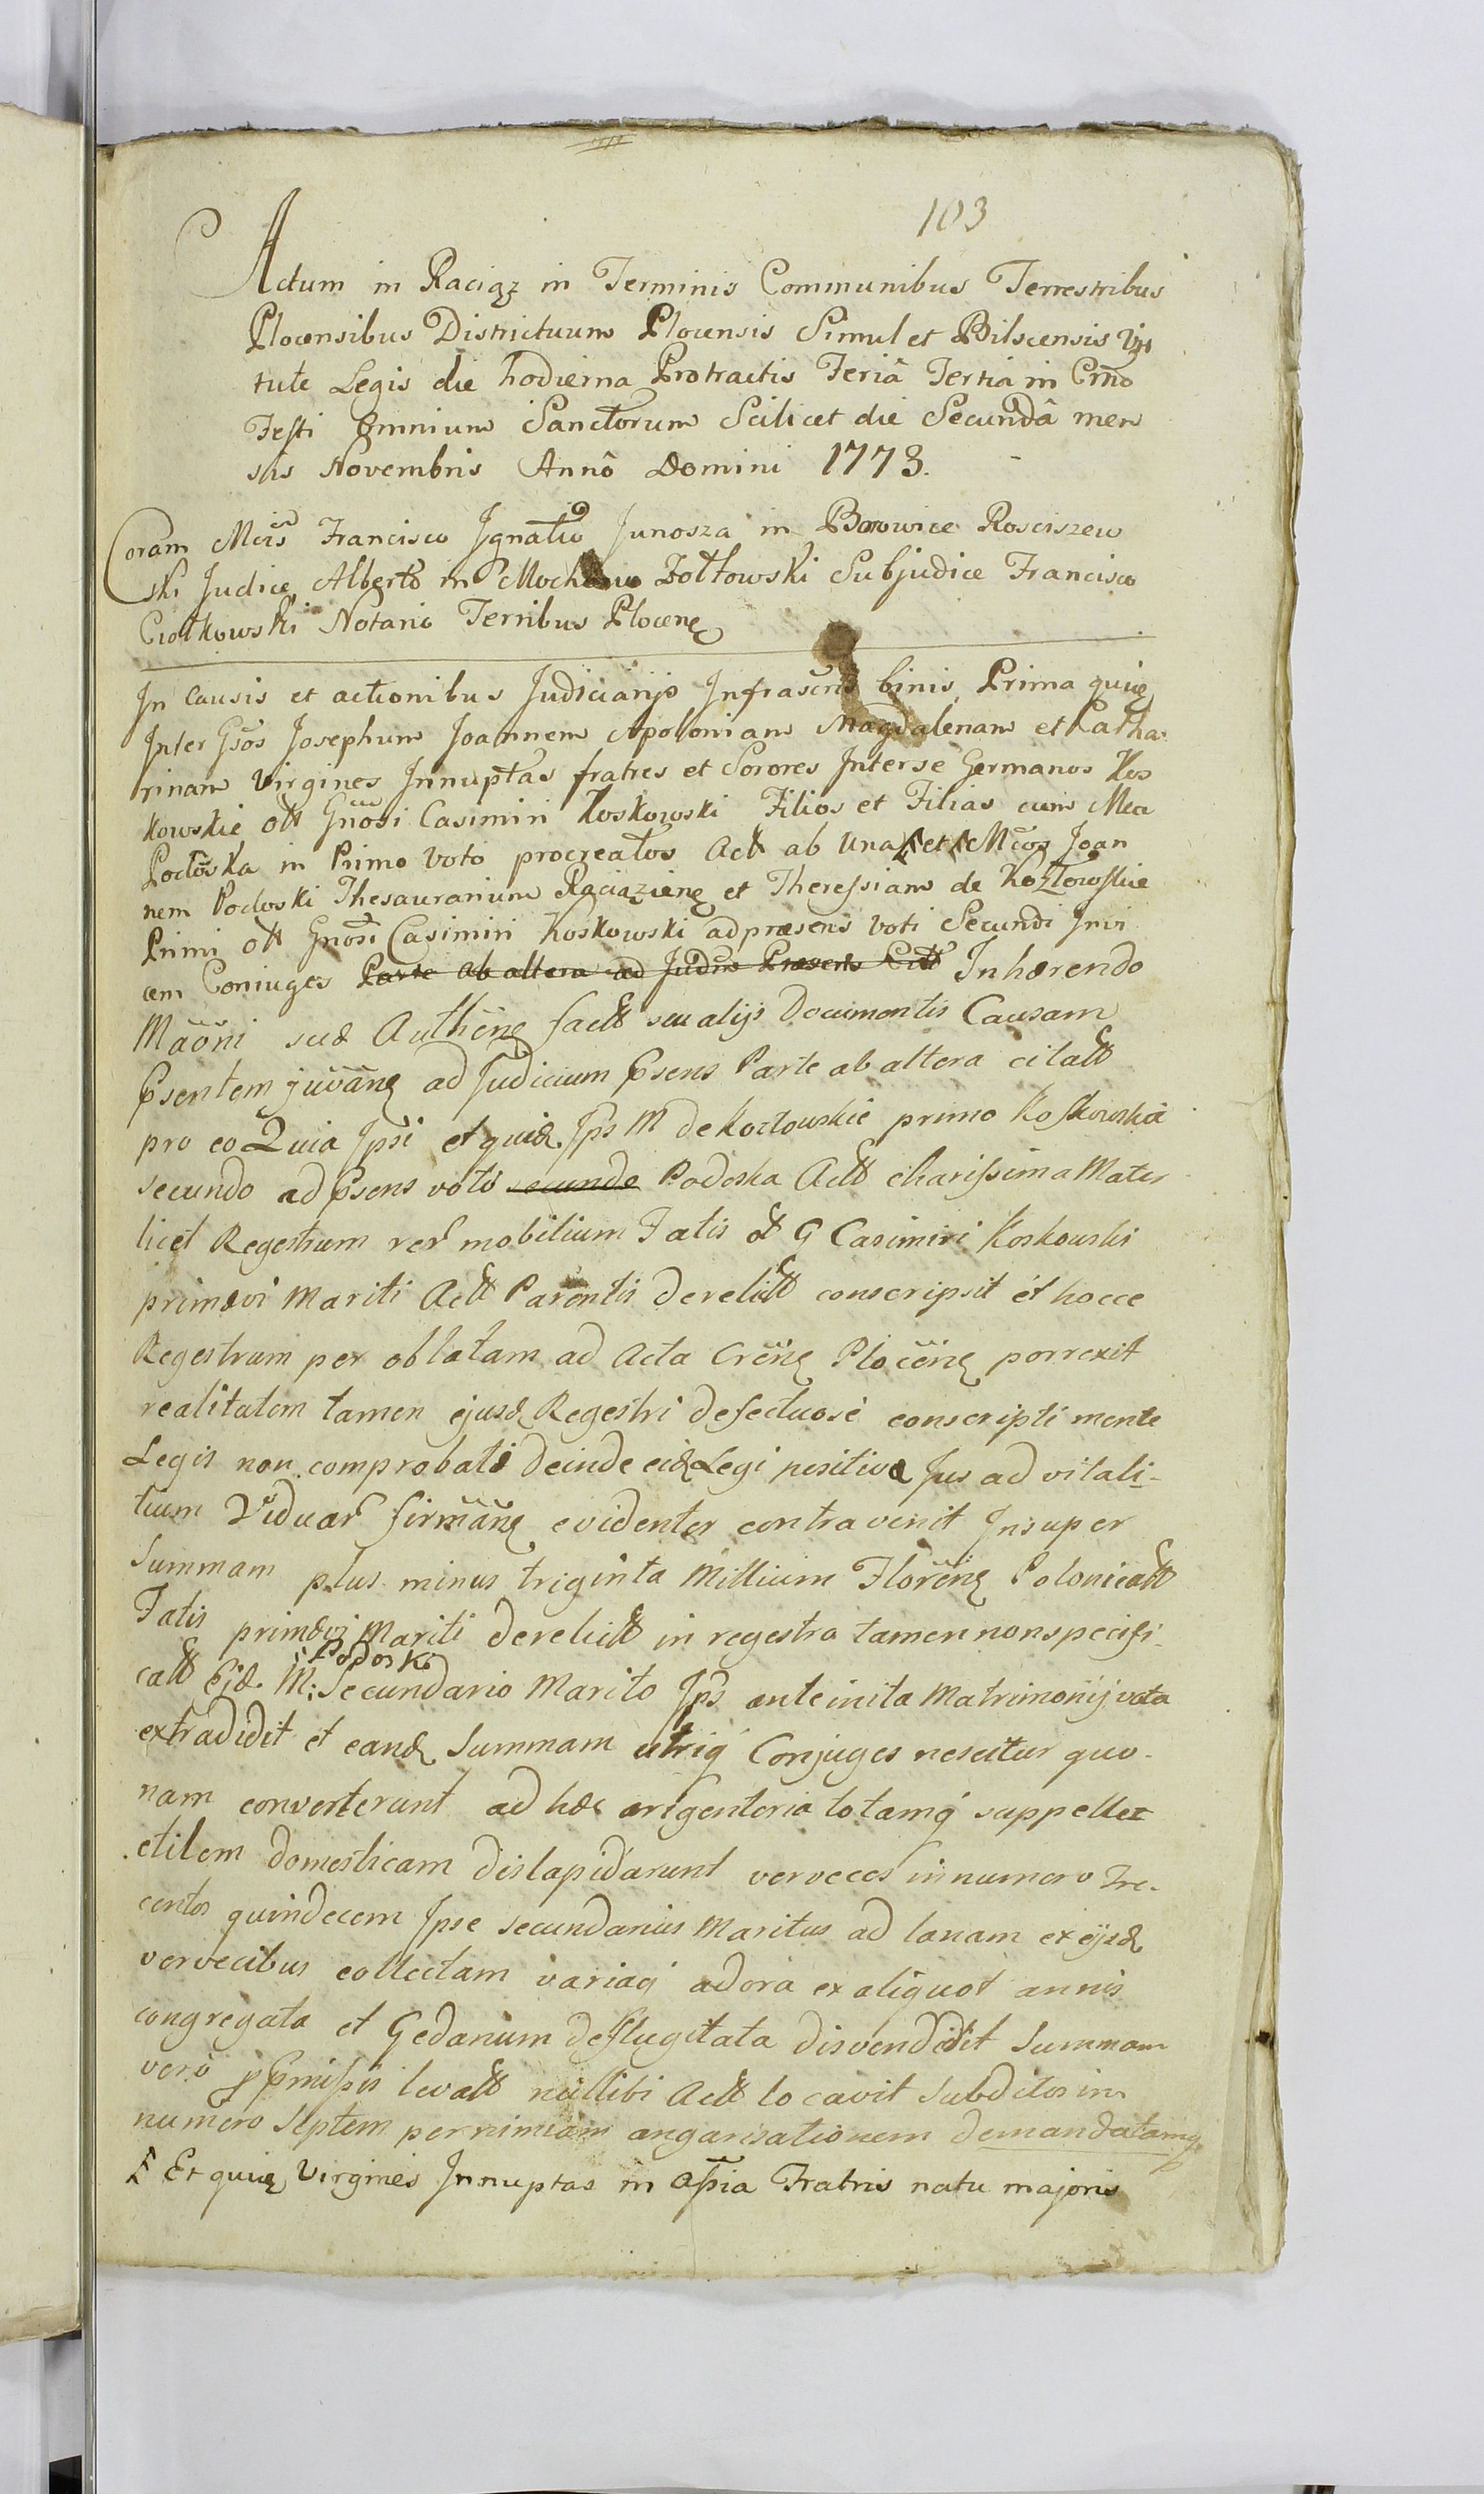 103
Actum in Raciąz in Terminis Communibus Terrestribus
Plocensibus Districtuum Plocensis Simul et Bilscensis Vir
tute Legis die hodierna Protractis Feriâ Tertiâ in Crnô
Festi Omnium Sanctorum Scilicet die Secundâ men
sis Novembris Annô Domini 1773.
Coram Mcis Francisco Jgnatio Junosza in Borowice Rosciszew
ski Judice, Alberto in Mochowo Zołtowski Subjudice Francisco
Ciołkowski Notario Terribus Plocenę
Jn Causis et actionibus Judiciarijs Jnfrascris binis, Prima quię
Jnter Gsos Josephum Joannem Apoloniam Magdalenam et Catha
rinam Virgines Jnnuptas fratres et Sorores Jnter se Germanos Kos
kowskie olt Gnosi Casimiri Koskowski Filios et Filias cum Mca
Podoska in Primo Voto procreatos Actt ab Una et Mcos Joan
nem Podoski Thesaurarium Raciązienę et Theressiam de Kozłowskie
Primi olt Gnosi Casimiri Koskowski ad præsens Voti Secundi Jnvi
cem Coniuges Parte ab altera ad Judm Præsens Citt Inhærendo
Mãoni suæ Authenę factt seu alijs Documentis Causam
Psentem juvanę ad Judicium Psens Parte ab altera citatt
pro eo Quia Jpsi et quid Jps M de Kozłowskie primo Koskowska
secundo ad Psens voto secundo Podoska Actt charissima Mater
licet Regestrum rer mobilium Fatis olt G Casimiri Koskowski
primævi Mariti Actt Parentis derelictt conscripsit et hocce
Regestrum per oblatam ad Acta Crenę Plocenę porrexit
realitatem tamen ejusd Regestri defectuose conscripti mente
Legis non comprobati deinde eid Legi positivæ Jus ad vitali-
tium Viduar firmanę evidenter contravenit Jnsuper
Summam plus minus triginta Millium Florenę Polonicatt
Fatis primævi Mariti derelictt in regestro tamen non specifi-
catt Ejd. M: Podoski Secundario Marito Jps ante inita Matrimonij vota
extradidit et eand Summam utriq Conjuges nescitur quo-
nam converterunt ad hæc argenteria totamq suppellec
ctilem domesticam dislapidarunt verveces in numero Tre-
centos quindecem Jpse secundarius Maritus ad lanam ex ejsd
vervecibus collectam variaq adora ex aliquot annis
congregata et Gedanum deflugitata disvendidit Summam
vero p Pmissis levatt nullibi Actt locavit Subditos in
numero Septem per nimiam angarisationem demandatamq
Et quię Virgines Jnnuptas in Assia Fratris natu majoris